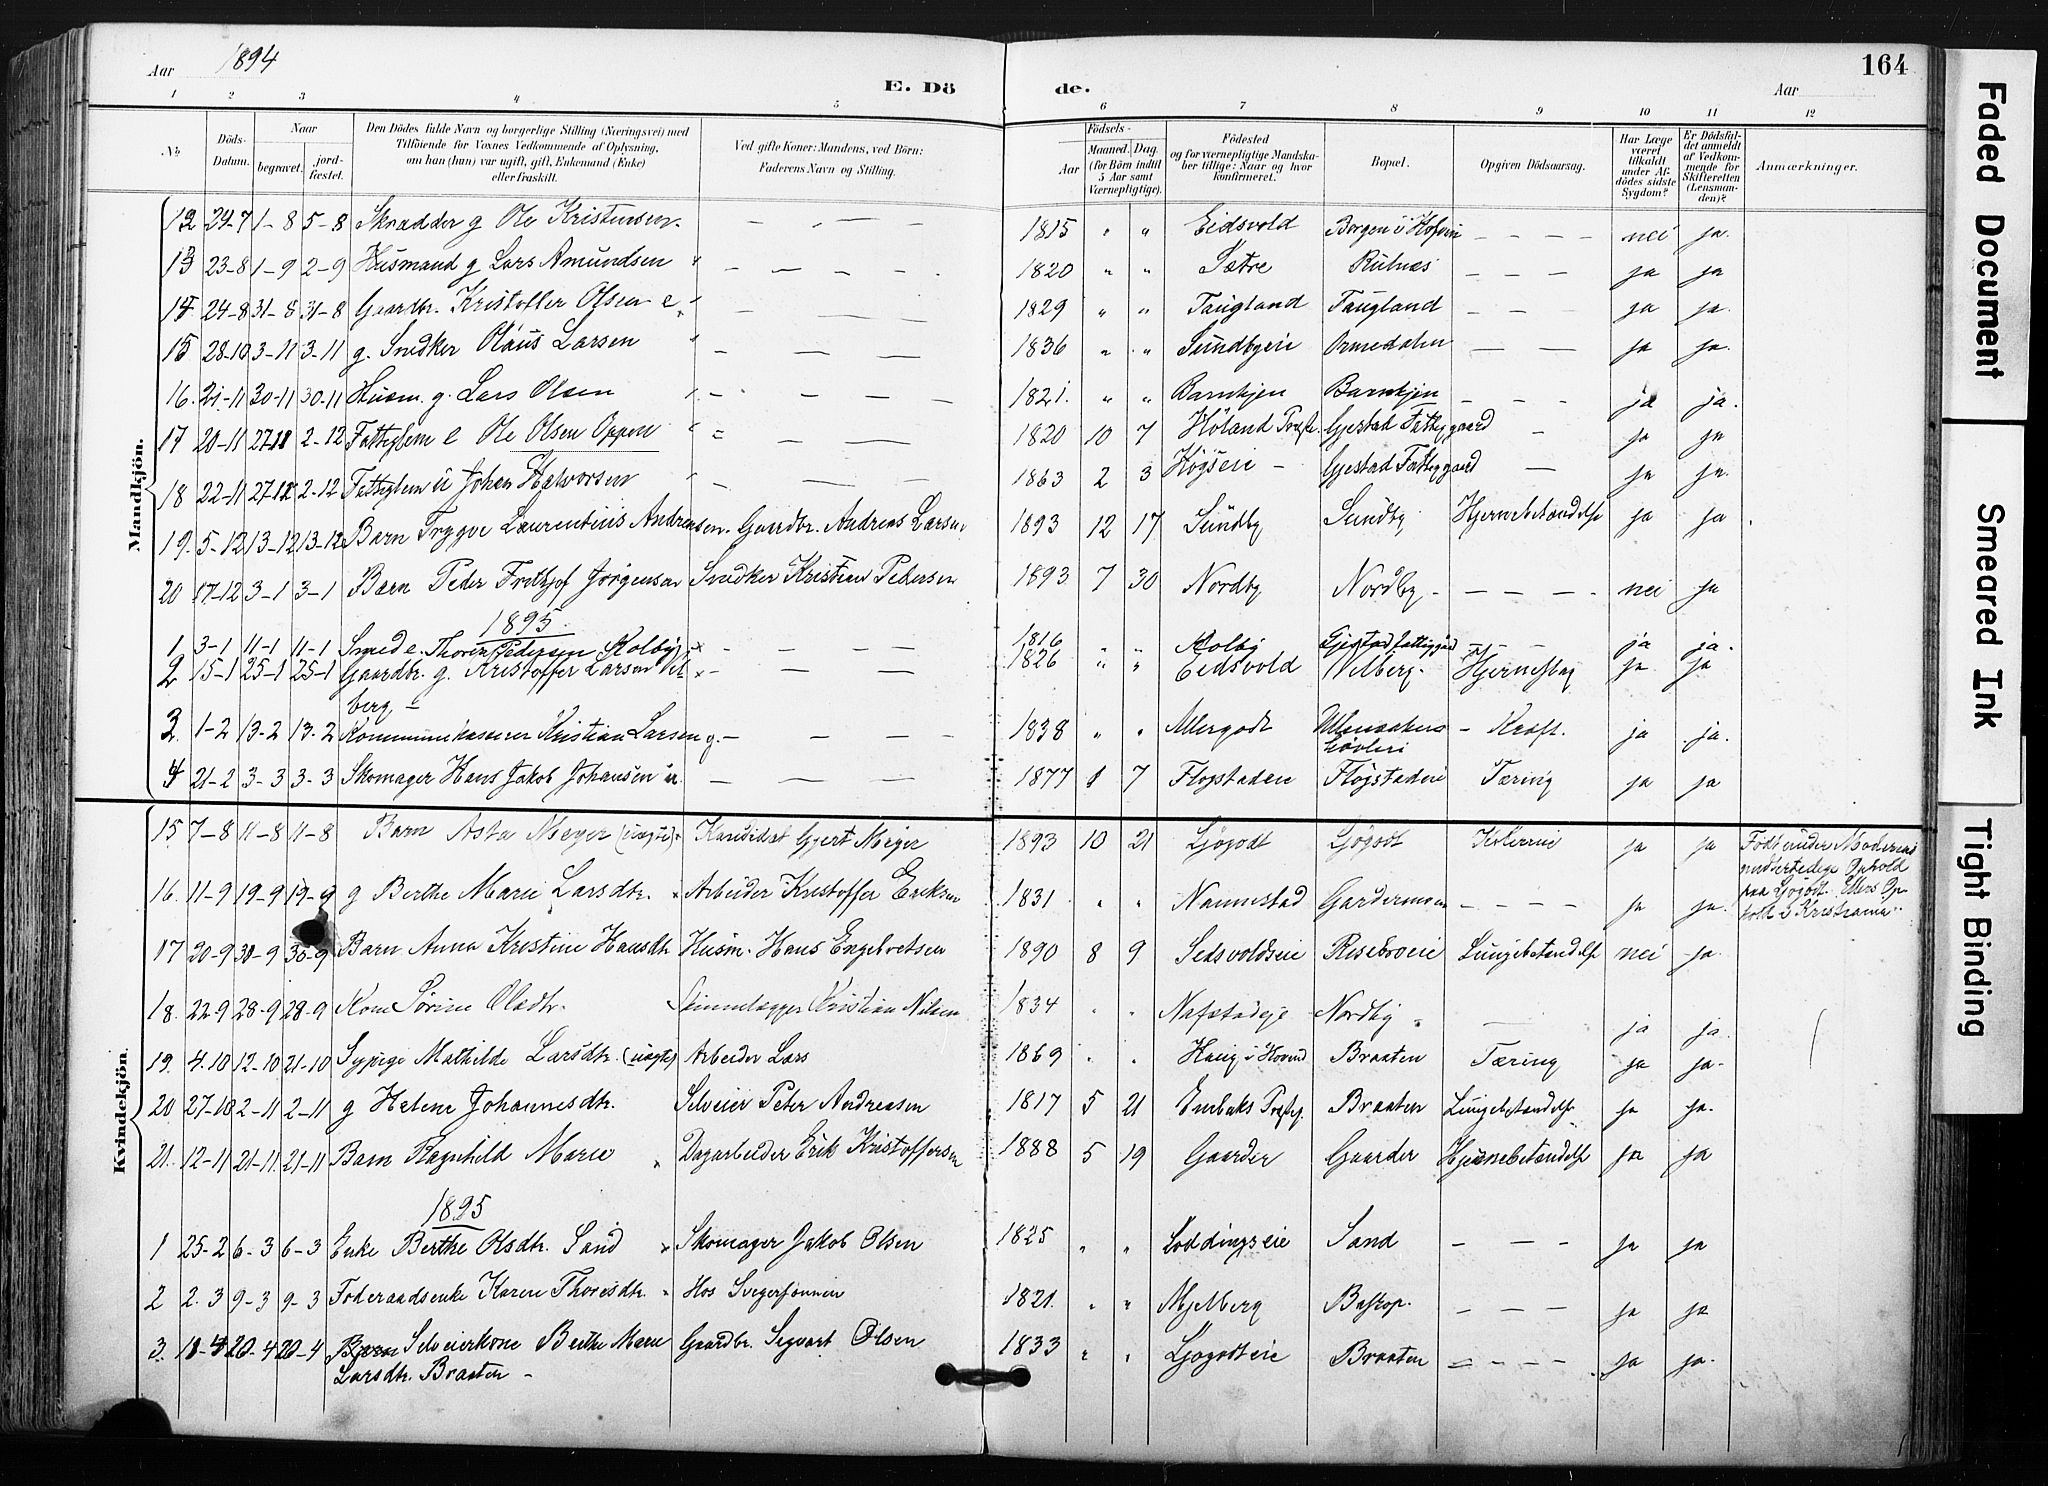 Aar 1894
E. Dö
de.
Aar
164
1 2 3 4 5 6 7 8 9 10 11 12
No.
Döds-Datum.
Naar
begravet.
jord-fæstet.
Den Dödes fulde Navn og borgerlige Stilling (Næringsvei) med
Tilföiende for Voxnes Vedkommende af Oplysning,
om han (hun) var ugift, gift, Enkemand (Enke)
eller fraskilt.
Ved gifte Koner: Mandens, ved Börn:
Faderens Navn og Stilling.
Födsels-
Aar
Maaned. Dag.
(for Börn indtil
5 Aar samt
Værnepligtige).
Födested
og for værnepligtige Mandska-
ber tillige: Naar og hvor
konfirmeret.
Bopæl.
Opgiven Dödsaarsag.
Har Læge
været
tilkaldt
under Af-
dödes sidste
Sygdom?
Er Dödsfal-
det anmeldt
af Vedkom-
mende for
Skifteretten
(Lensman-
den)?
Anmærkninger.
Mandkjön.
12 29-7 1-8 5-8 Skrædder g Ole Kristensen. — — — 1815 " " Eidsvold Borgen i Hofvin — — — — nei ja.
13 23-8 1-9 2-9 Husmand g Lars Amundsen " — — — 1820 " " Sætre Rulnæs — — — ja ja
14 24-8 31-8 31-8 Gaardbr. Kristoffer Olsen e " — — — 1829 " " Taugland Taugland — — — ja ja.
15 28-10 3-11 3-11 g. Snedker Olaus Larsen " — — — 1836 " " Sundbyeie Ormedalen — — — ja ja.
16. 21-11 30-11 30-11 Husm. g. Lars Olsen — — — 1821. " " Barnhjen Barnhjen — — — ja ja.
17 20-11 27-11 2-12 Fattiglem e Ole Olsen Oppen " — — — 1820 10 7 Höland Præst. Gjestad Fattiggaard — ja ja
18 22-11 27-11 2-12 Fattiglem u Johan Halvorsen — — — 1863 2 3 Högseie — Gjestad Fattiggaard — ja ja.
19. 5-12 13-12 13-12 Barn Trygve Laurentius Andreasen. Gaardbr. Andreas Larsen 1893 12 17 Sundby Sundby Hjernebetændelse ja ja
20 17-12 3-1 3-1 Barn Peder Frithjof Jörgensen Snedker Kristian Petersen 1893 7 30 Nordby Nordby — — — nei ja
1895.
1 3-1 11-1 11-1 Smed e. Thoren Pedersen Kolby " — — — 1816 " " Kolby Gjestad fattiggård — — ja ja.
2 15-1 25-1 25-1 Gaardbr. g. Kristoffer Larsen Vil- " — — 1826 " " Eidsvold Vilberg. Hjerneslag ja ja
berg —
3 1-2 13-2 13-2 Kommunekasserer Kristian Larsen g. — — — 1838 " " Allergodt Ullensakers — Kræft. ja ja.
4 21-2 3-3 3-3 Skomager Hans Jakob Johansen u. — — — 1877 1 7 Flogstadeie Flogstadeie Tæring ja ja
Kvindekjön.
15 7-8 11-8 11-8 Barn Asta Meyer (uægte) " Kandidat Gjert Meyer 1893 10 21 Ljögodt Ljögodt Kolerine ja ja Födt under Moderens
midlertidige Ophold
paa Ljögodt. Ellers Op-
hold i Kristiania.
16. 11-9 19-9 19-9 g Berthe Marie Larsdtr. " Arbeider Kristoffer Eriksen 1831 " " Nannestad Gardermoen — — — — ja ja.
17 20-9 30-9 30-9 Barn Anna Kristine Hansdtr Husm. Hans Engebretsen 1890 8 9 Sedsvoldseie Risebroeie Lungebetændelse nei ja.
18. 22-9 28-9 28-9 Kone Sörine Olsdtr. Kristian Nilsen 1834 " " Nafstadeje Nordby " — ja ja.
19. 4-10 12-10 21-10 Sypige Mathilde Larsdtr. (uægte) Arbeider Lars 1869 " " Haug i Hovind Braaten Tæring ja ja.
20 27-10 2-11 2-11 g Helene Johannesdtr. Selveier Peter Andreasen 1817 5 21 Enebaks Præstg. Braaten Lungebetændelse ja ja.
21. 12-11 21-11 21-11 Barn Ragnhild Marie " Dagarbeider Erik Kristoffersen 1888 5 19 Gaarder Gaarder Hjernebetændelse ja ja
1895
1 25-2 6-3 6-3 Enke Berthe Olsdtr. Sand " Skomager Jakob Olsen 1825 " " Loddingseie Sand — — — ja ja
2 2-3 9-3 9-3 Föderaadsenke Karen Thoresdtr. " Hos Svigersönnen 1821. " " Mjelberg Bastrop. — — — — ja ja
3. 10-4 20-4 20-4 Selveierkone Berthe Marie Gaardbr. Sigvart Olsen 1833 " " Ljögodteie Braaten — — — — ja ja.
Larsdtr. Braaten —
Faded Document
Smeared Ink
Tight Binding